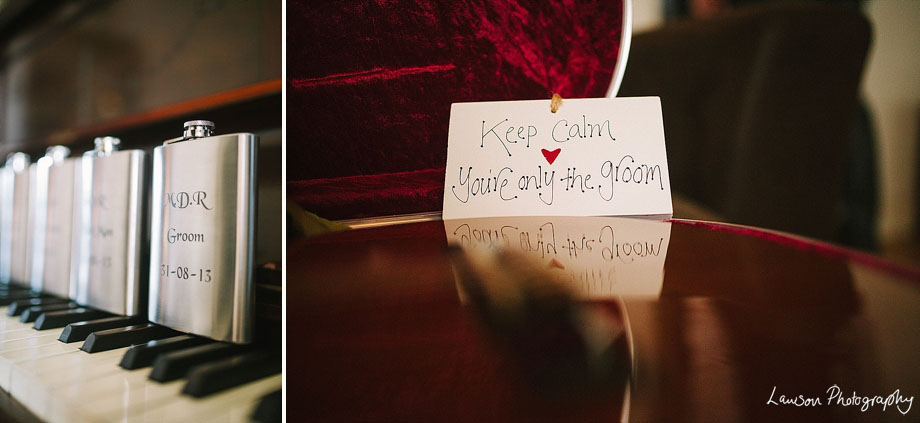 M.D.R
Groom
31-08-13
Keep Calm
You're only the groom
Lawson Photography